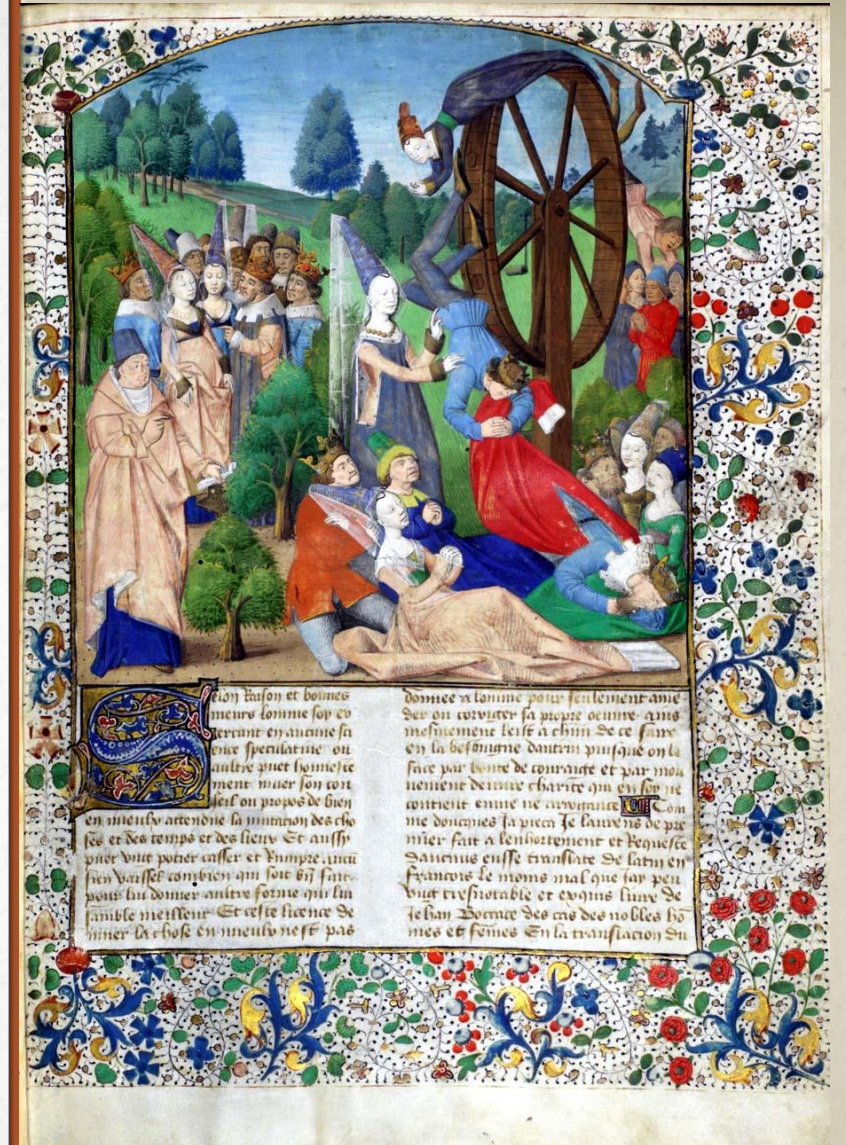 Selon Raison et bonnes
meurs lomme soy ex
ercant en aucune sci
ence speculatiue ou
aultre puet honneste
ment muer son con
seil ou propos de bien
en mieulx attendue la mutation des cho
ses et des temps et des lieux Et aussy
puet vng potier casser et Rumpre aucun
sien vaissel combien quil soit bien fait
pour lui donner aultre forme qui lui
samble meilleur Et ceste licence de
muer la chose en mieulx nest pas
donnee a lomme pour seulement amen
der ou corrigier sa propre oeuure ains
mesmement leist a chun de ce faire
en la besoingne dautrui puisque on le
face par bonte de couraige et par mou
uement de pure charite qui en soy ne
contient enuie ne arrogance Com
me doncques Ja pieca Je laurens de pre
mier fait a lenhortement et Requeste
daucuns eusse translate de latin en
francois le moins mal que Jay peu
vng tresnotable et exquis liure de
Jehan Boccace des cas des nobles hō
mes et femmes En la translacion du